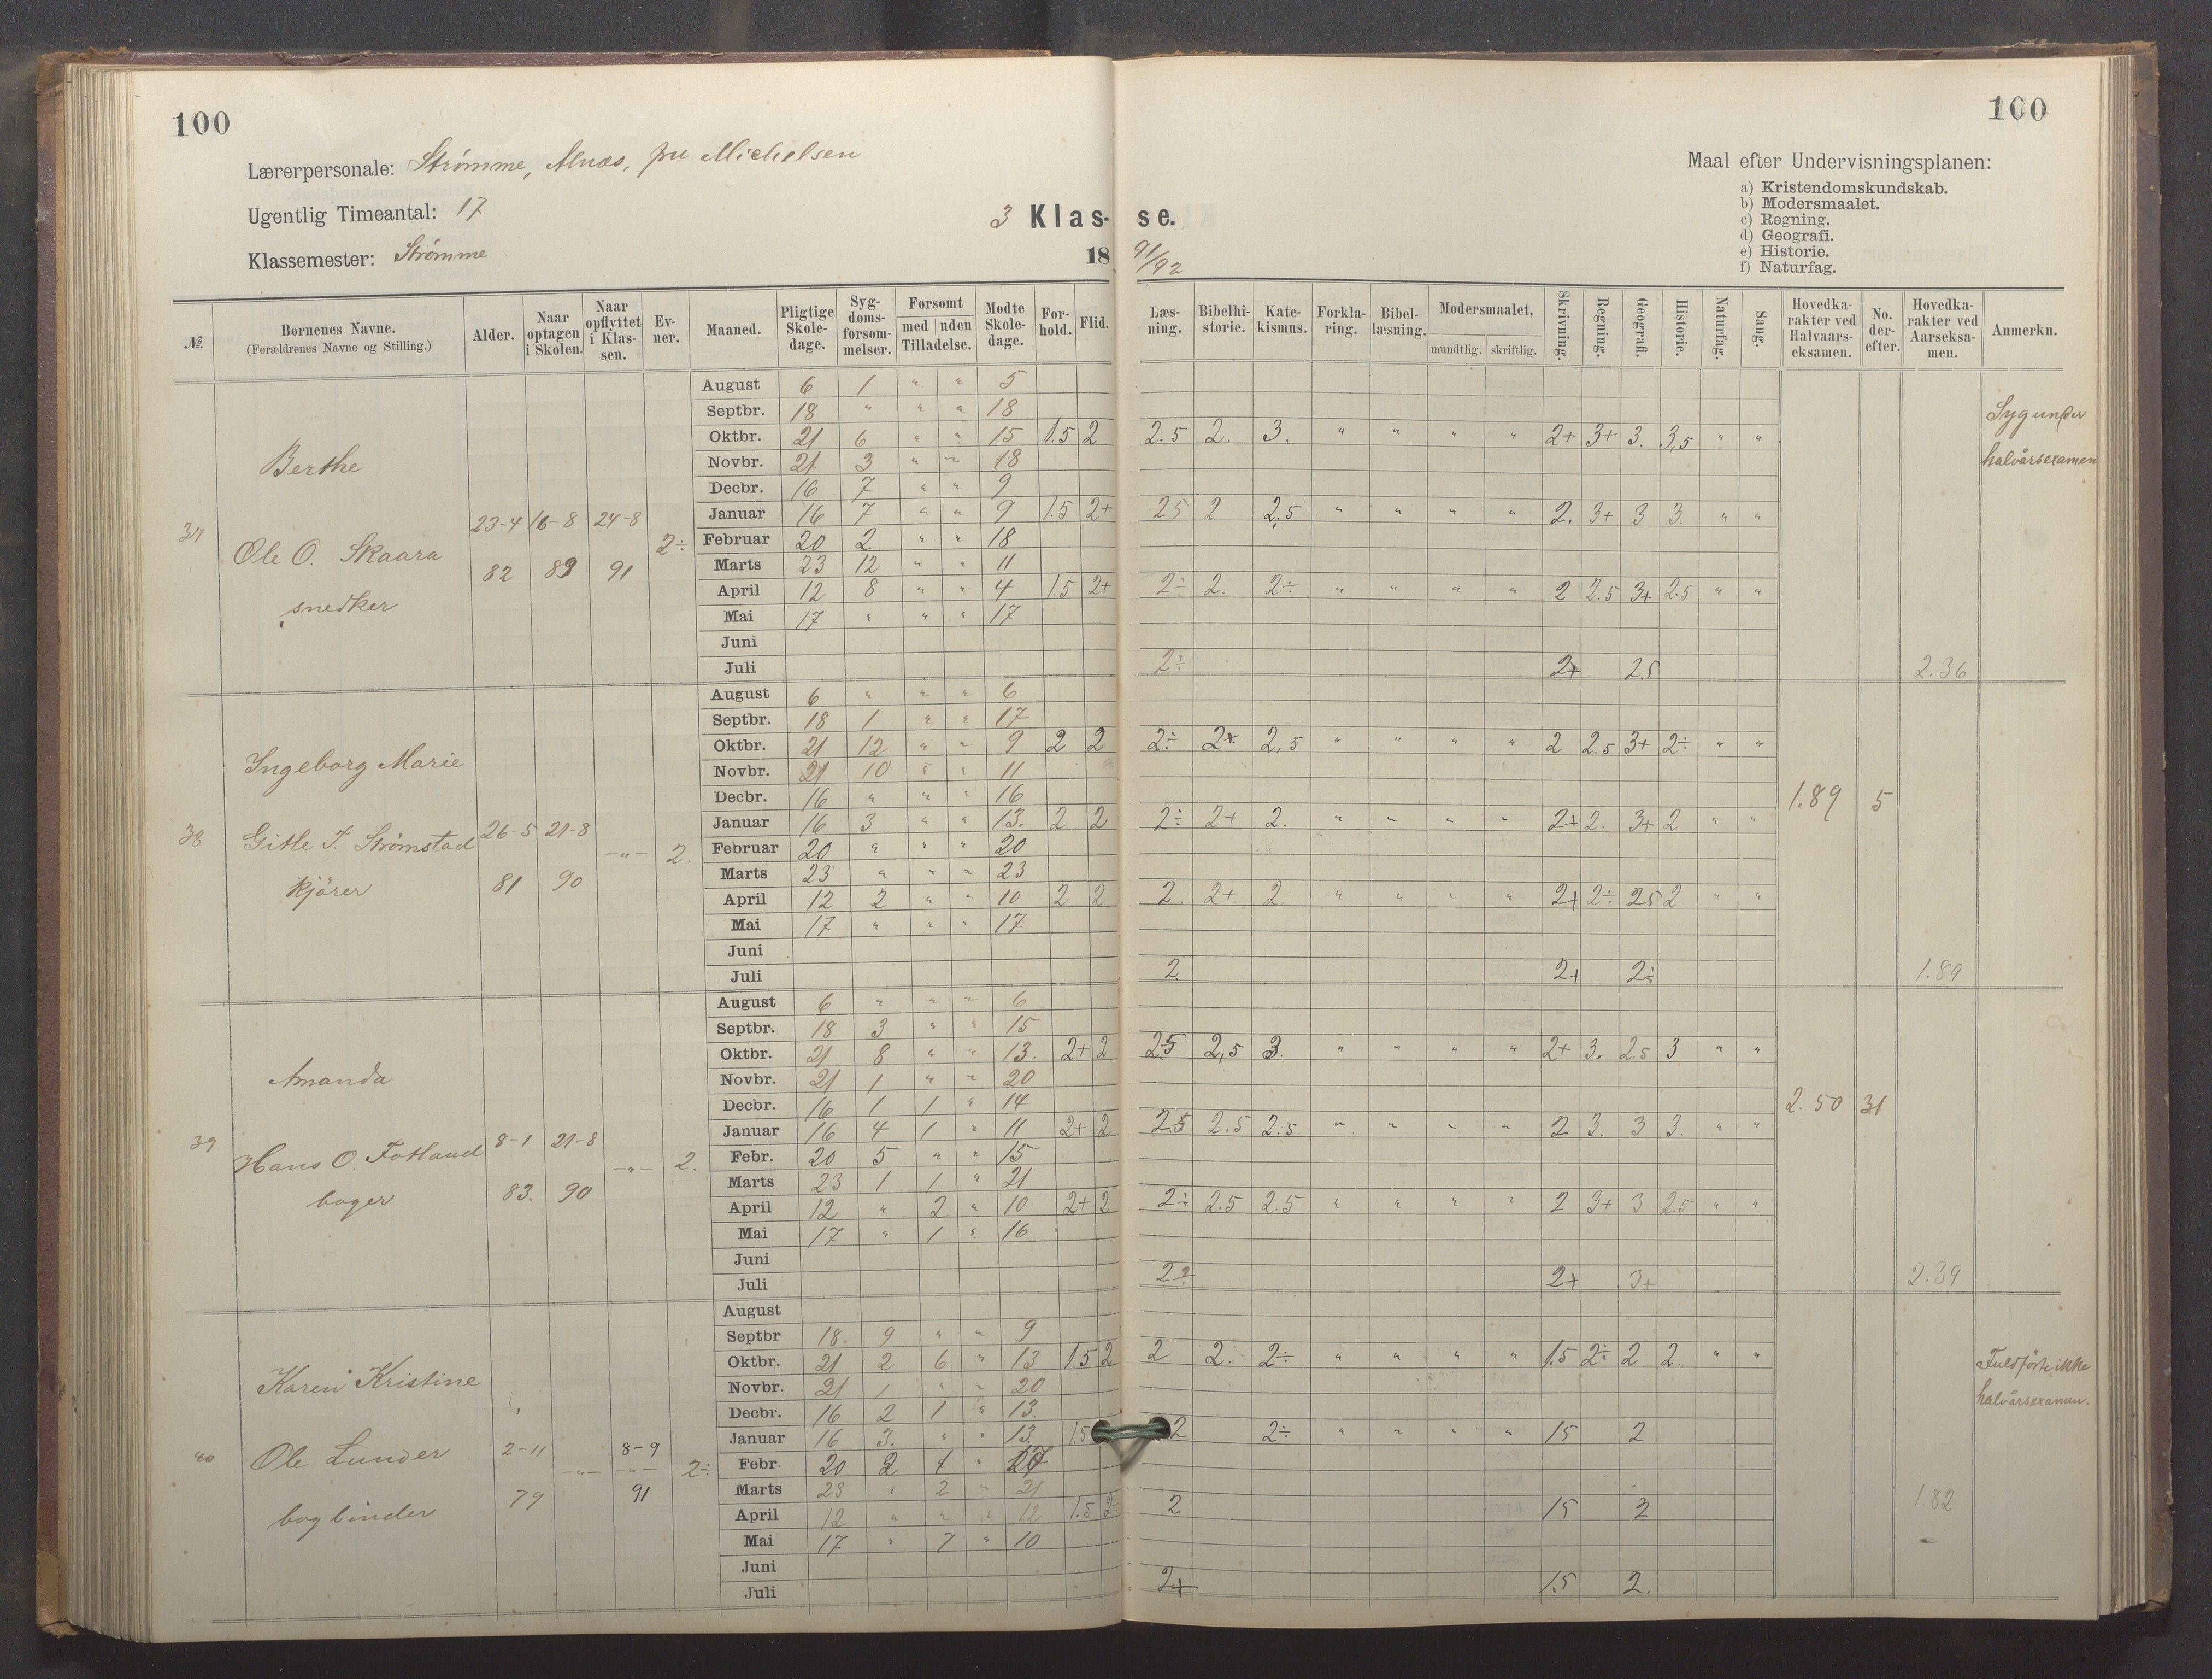 100
100
Lærerpersonale: Strømme, Alnæs, fru Michelsen
Ugentlig Timeantal: 17
Klassemester: Strømme
3 Klas- se.
18 91/92
Maal efter Undervisningsplanen:
a) Kristendomskundskab.
b) Modersmaalet.
c) Regning.
d) Geografi.
e) Historie.
f) Naturfag.
№ Børnenes Navne. (Forældrenes Navne og Stilling.) Alder. Naar optagen i Skolen. Naar opflyttet i Klassen. Evner. Maaned. Pligtige Skoledage. Sygdomsforsømmelser. Forsømt med uden Tilladelse. Mødte Skoledage. Forhold. Flid. Læsning. Bibelhistorie. Katekismus. Forklaring. Bibellæsning. Modersmaalet, mundtlig. skriftlig. Skrivning. Regning. Geografi. Historie. Naturfag. Sang. Hovedkarakter ved Halvaarseksamen. No. derefter. Hovedkarakter ved Aarseksamen. Anmerkn.
37 Berthe
Ole O. Skaara
snedker
23-4 82 16-8 89 24-8 91 2÷
August 6 1 " " 5
Septbr. 18 " " " 18
Oktbr. 21 6 " " 15 1.5 2 2.5 2. 3. " " " " 2+ 3+ 3. 3,5 " "
Novbr. 21 3 " " 18
Decbr. 16 7 " " 9
Januar 16 7 " " 9 1.5 2+ 25 2 2,5 " " " " 2. 3+ 3 3. " "
Februar 20 2 " " 18
Marts 23 12 " " 11
April 12 8 " " 4 1.5 2+ 2÷ 2. 2÷ " " " " 2 2.5 3+ 2.5 " "
Mai 17 " " " 17
Juni
Juli 2÷ 2+ 25 2.36
Syg under
halvårsexamen
38 Ingeborg Marie
Gitle T. Strømstad
kjörer
26-5 81 21-8 90 -"- 2.
August 6 " " " 6
Septbr. 18 1 " " 17
Oktbr. 21 12 " " 9 2 2 2÷ 2+ 2,5 " " " " 2 2.5 3+ 2÷ " "
Novbr. 21 10 " " 11
Decbr. 16 " " " 16
1.89 5
Januar 16 3 " " 13. 2 2 2÷ 2+ 2. " " " " 2+ 2. 3+ 2 " "
Februar 20 " " " 20
Marts 23 " " " 23
April 12 2 " " 10 2 2 2 2+ 2 " " " " 2+ 2÷ 25 2 " "
Mai 17 " " " 17
Juni
Juli 2. 2+ 2÷ 1.89
39 Amanda
Hans O. Fotland
bager
8-1 83. 21-8 90 -"- 2.
August 6 " " " 6
Septbr. 18 3 " " 15
Oktbr. 21 8 " " 13. 2+ 2 25 2,5 3. " " " " 2+ 3. 2.5 3 " "
Novbr. 21 1 " " 20
Decbr. 16 1 1 " 14
2.50 31
Januar 16 4 1 " 11 2+ 2 2.5 2.5 2.5 " " " " 2 3. 3 3. " "
Febr. 20 5 " " 15
Marts 23 1 1 " 21
April 12 " 2 " 10 2+ 2 2÷ 2.5 2.5 " " " " 2 3+ 3 2.5 " "
Mai 17 " 1 " 16
Juni
Juli 2÷ 2+ 3+ 2.39
40 Karen Kristine
Ole Lunder
bogbinder
2-11 79 -"- 8-9 -"- 91 2÷
August
Septbr 18. 9 " " 9
Oktbr. 21 2 6 " 13 1.5 2 2 2. 2÷ " " " " 1.5 2÷ 2 2. " "
Novbr. 21 1 " " 20
Decbr. 16 2 1 " 13.
Januar 16 3. " " 13. 1.5 2 2÷ " " " " 15 2
Febr. 20 2 1 " 17
Marts 23 " 2 " 21
April 12 " " " 12 1.5 2÷ 2 15 2
1.82
Mai 17 " 7 " 10
Juni
Juli 2+ 1.5 2.
Fuldførte ikke
halvårsexamen.